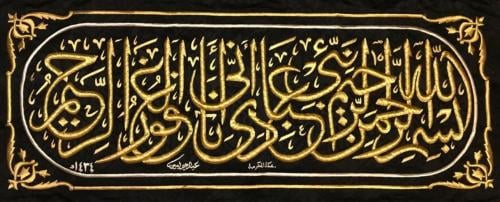 بسم الله الرحمن الرحيم نبئ عبادي أني أنا الغفور الرحيم
مكة المكرمة
١٤٣٤هـ